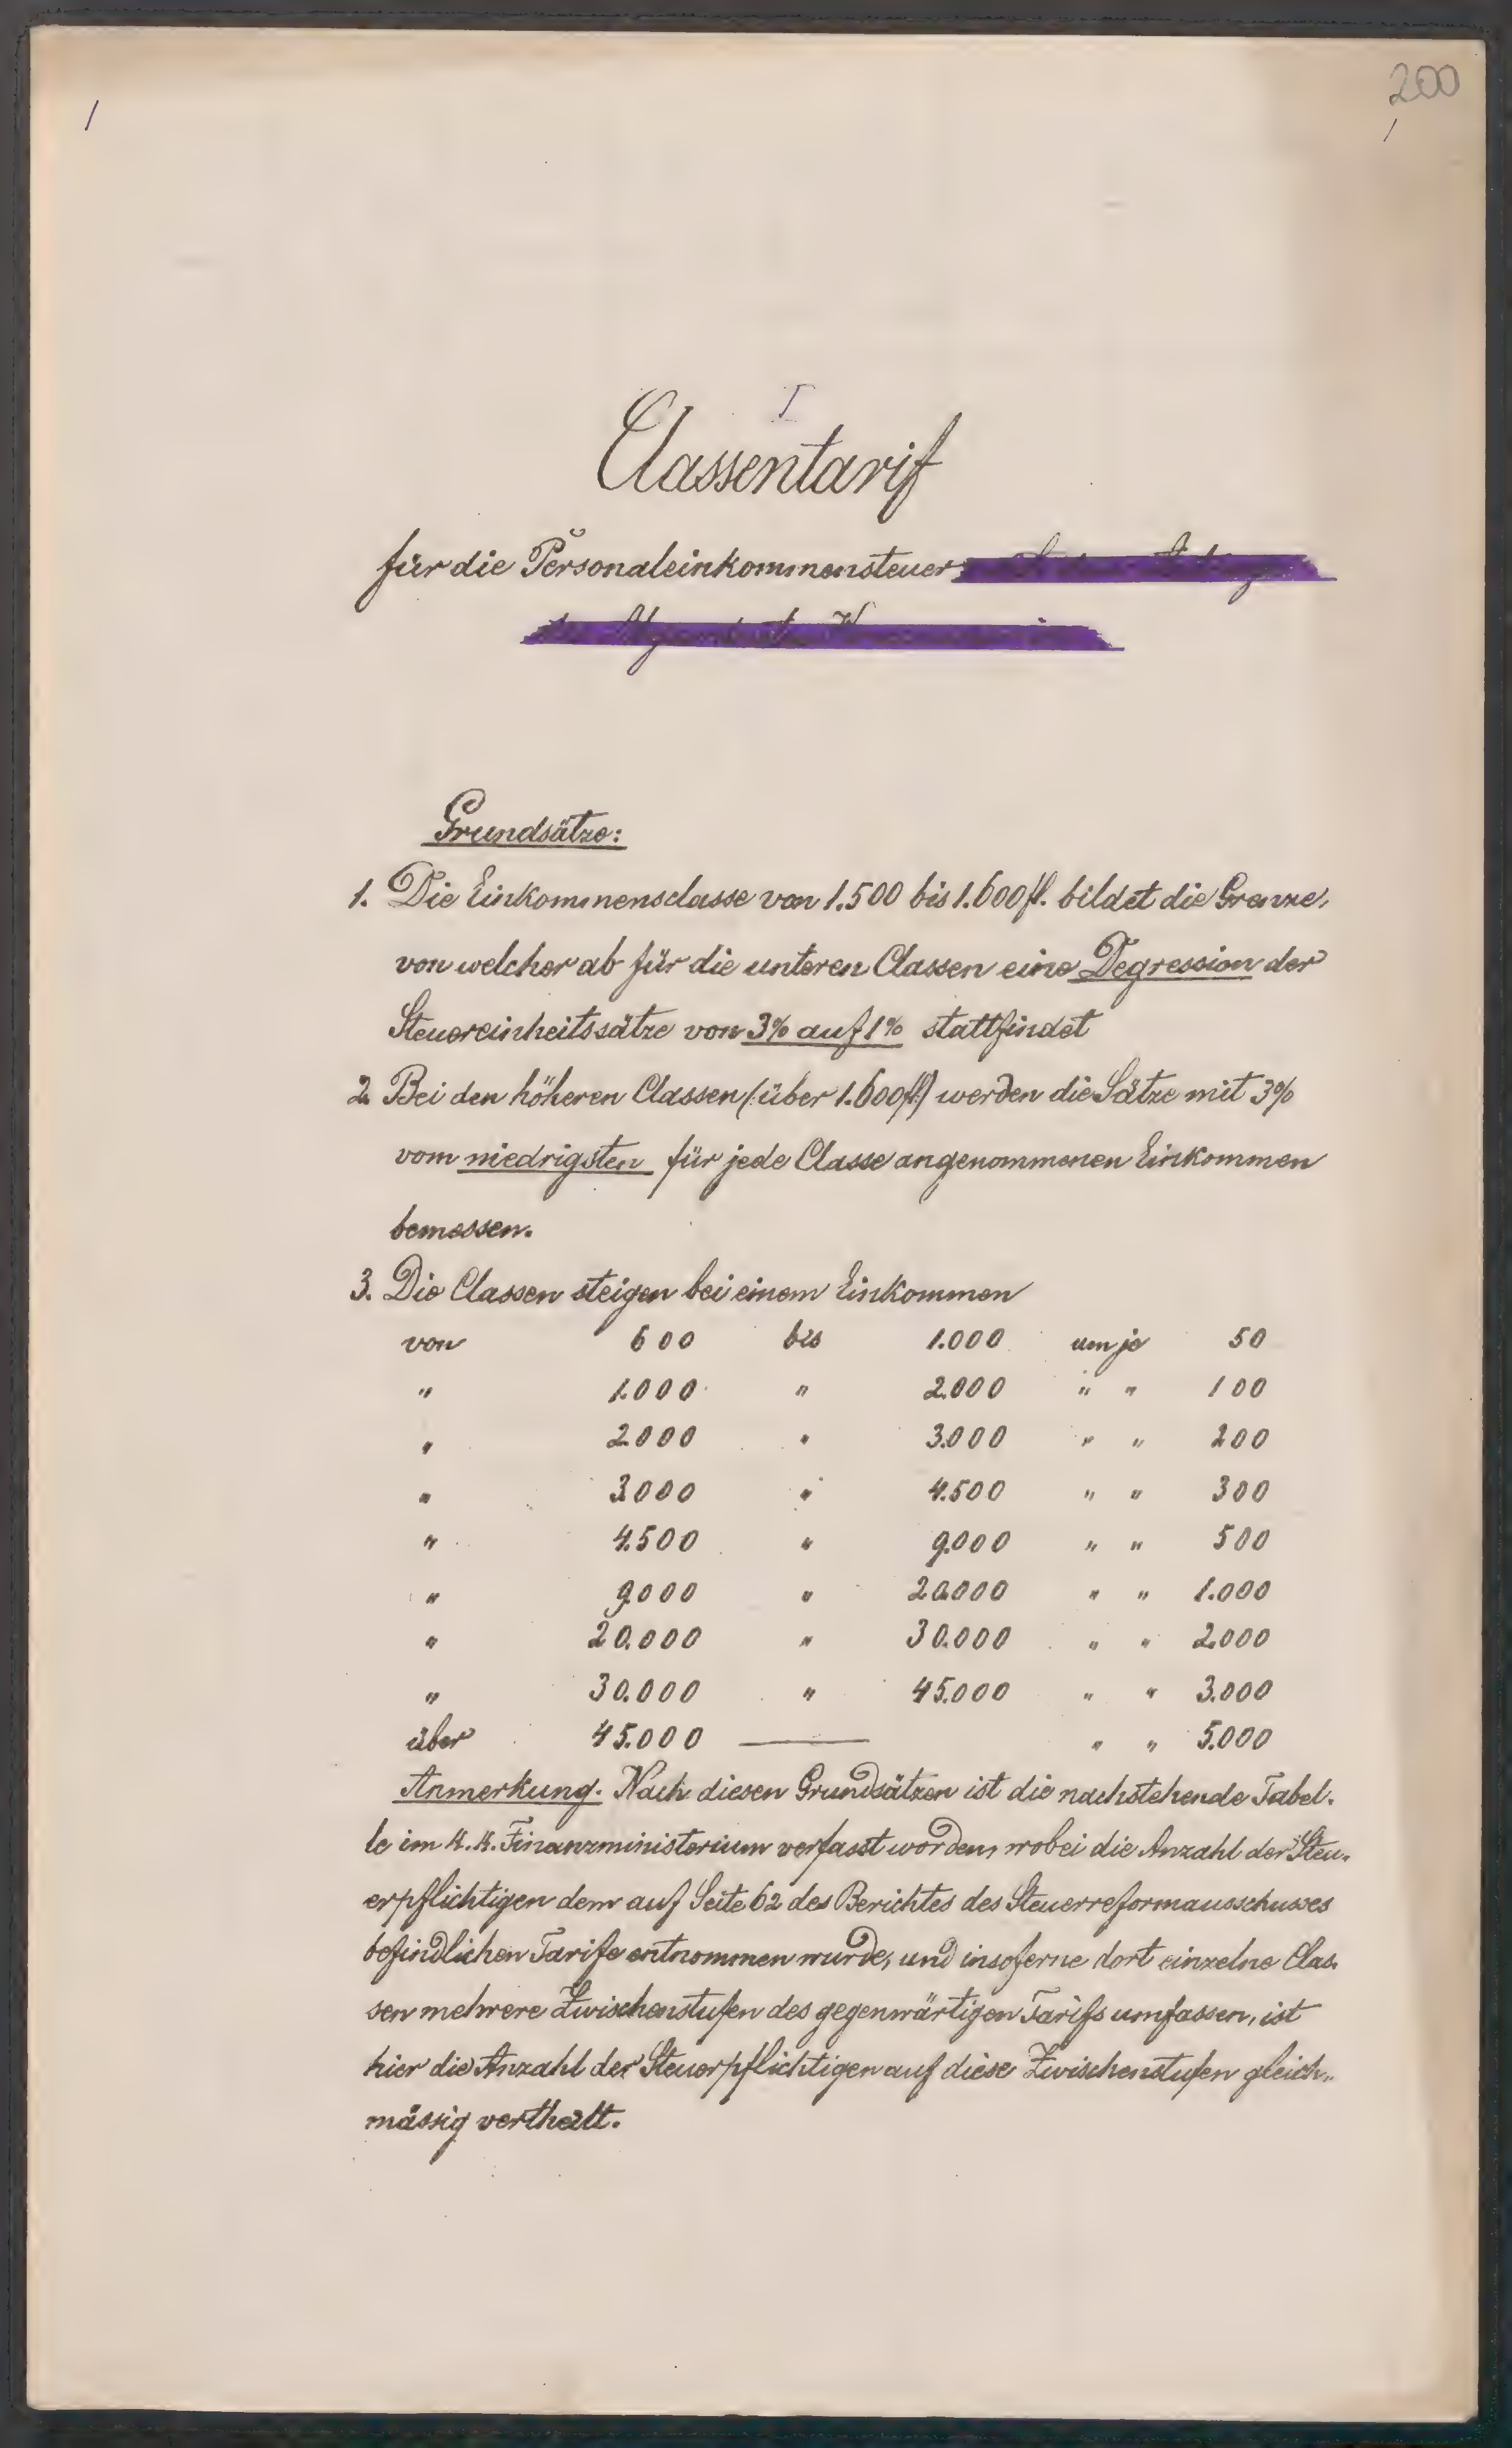 200
I
Classentarif
für die Personaleinkommensteuer
Grundsätze:
1. Die Einkommensclasse von 1.500 bis 1.600 fl. bildet die Grenze,
von welcher ab für die unteren Classen eine Degression der
Steuereinheitssätze von 3% auf 1% stattfindet
2. Bei den höheren Classen (:über 1.600 fl:) werden die Sätze mit 3%
vom niedrigsten für jede Classe angenommenen Einkommen
bemessen.
3. Die Classen steigen bei einem Einkommen
von 600 bis 1.000 um je 50
" 1.000 " 2.000 " " 100
" 2.000 " 3.000 " " 200
" 3.000 " 4.500 " " 300
" 4.500 " 9.000 " " 500
" 9.000 " 20.000 " " 1.000
" 20.000 " 30.000 " " 2.000
" 30.000 " 45.000 " " 3.000
über 45.000 — " " 5.000
Anmerkung. Nach diesen Grundsätzen ist die nachstehende Tabel-
le im k.k. Finanzministerium verfasst worden, wobei die Anzahl der Steu-
erpflichtigen dem auf Seite 62 des Berichtes des Steuerreformausschusses
befindlichen Tarife entnommen wurde, und insoferne dort einzelne Clas-
sen mehrere Zwischenstufen des gegenwärtigen Tarifs umfassen, ist
hier die Anzahl der Steuerpflichtigen auf diese Zwischenstufen gleich-
mässig vertheilt.